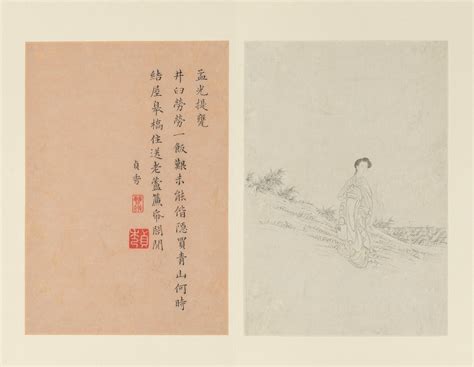 孟光提甕
井臼勞勞一飯艱未能偕隱買青山何時
結屋皋橋住送老蘆簾帋閣間
貞秀
貞秀